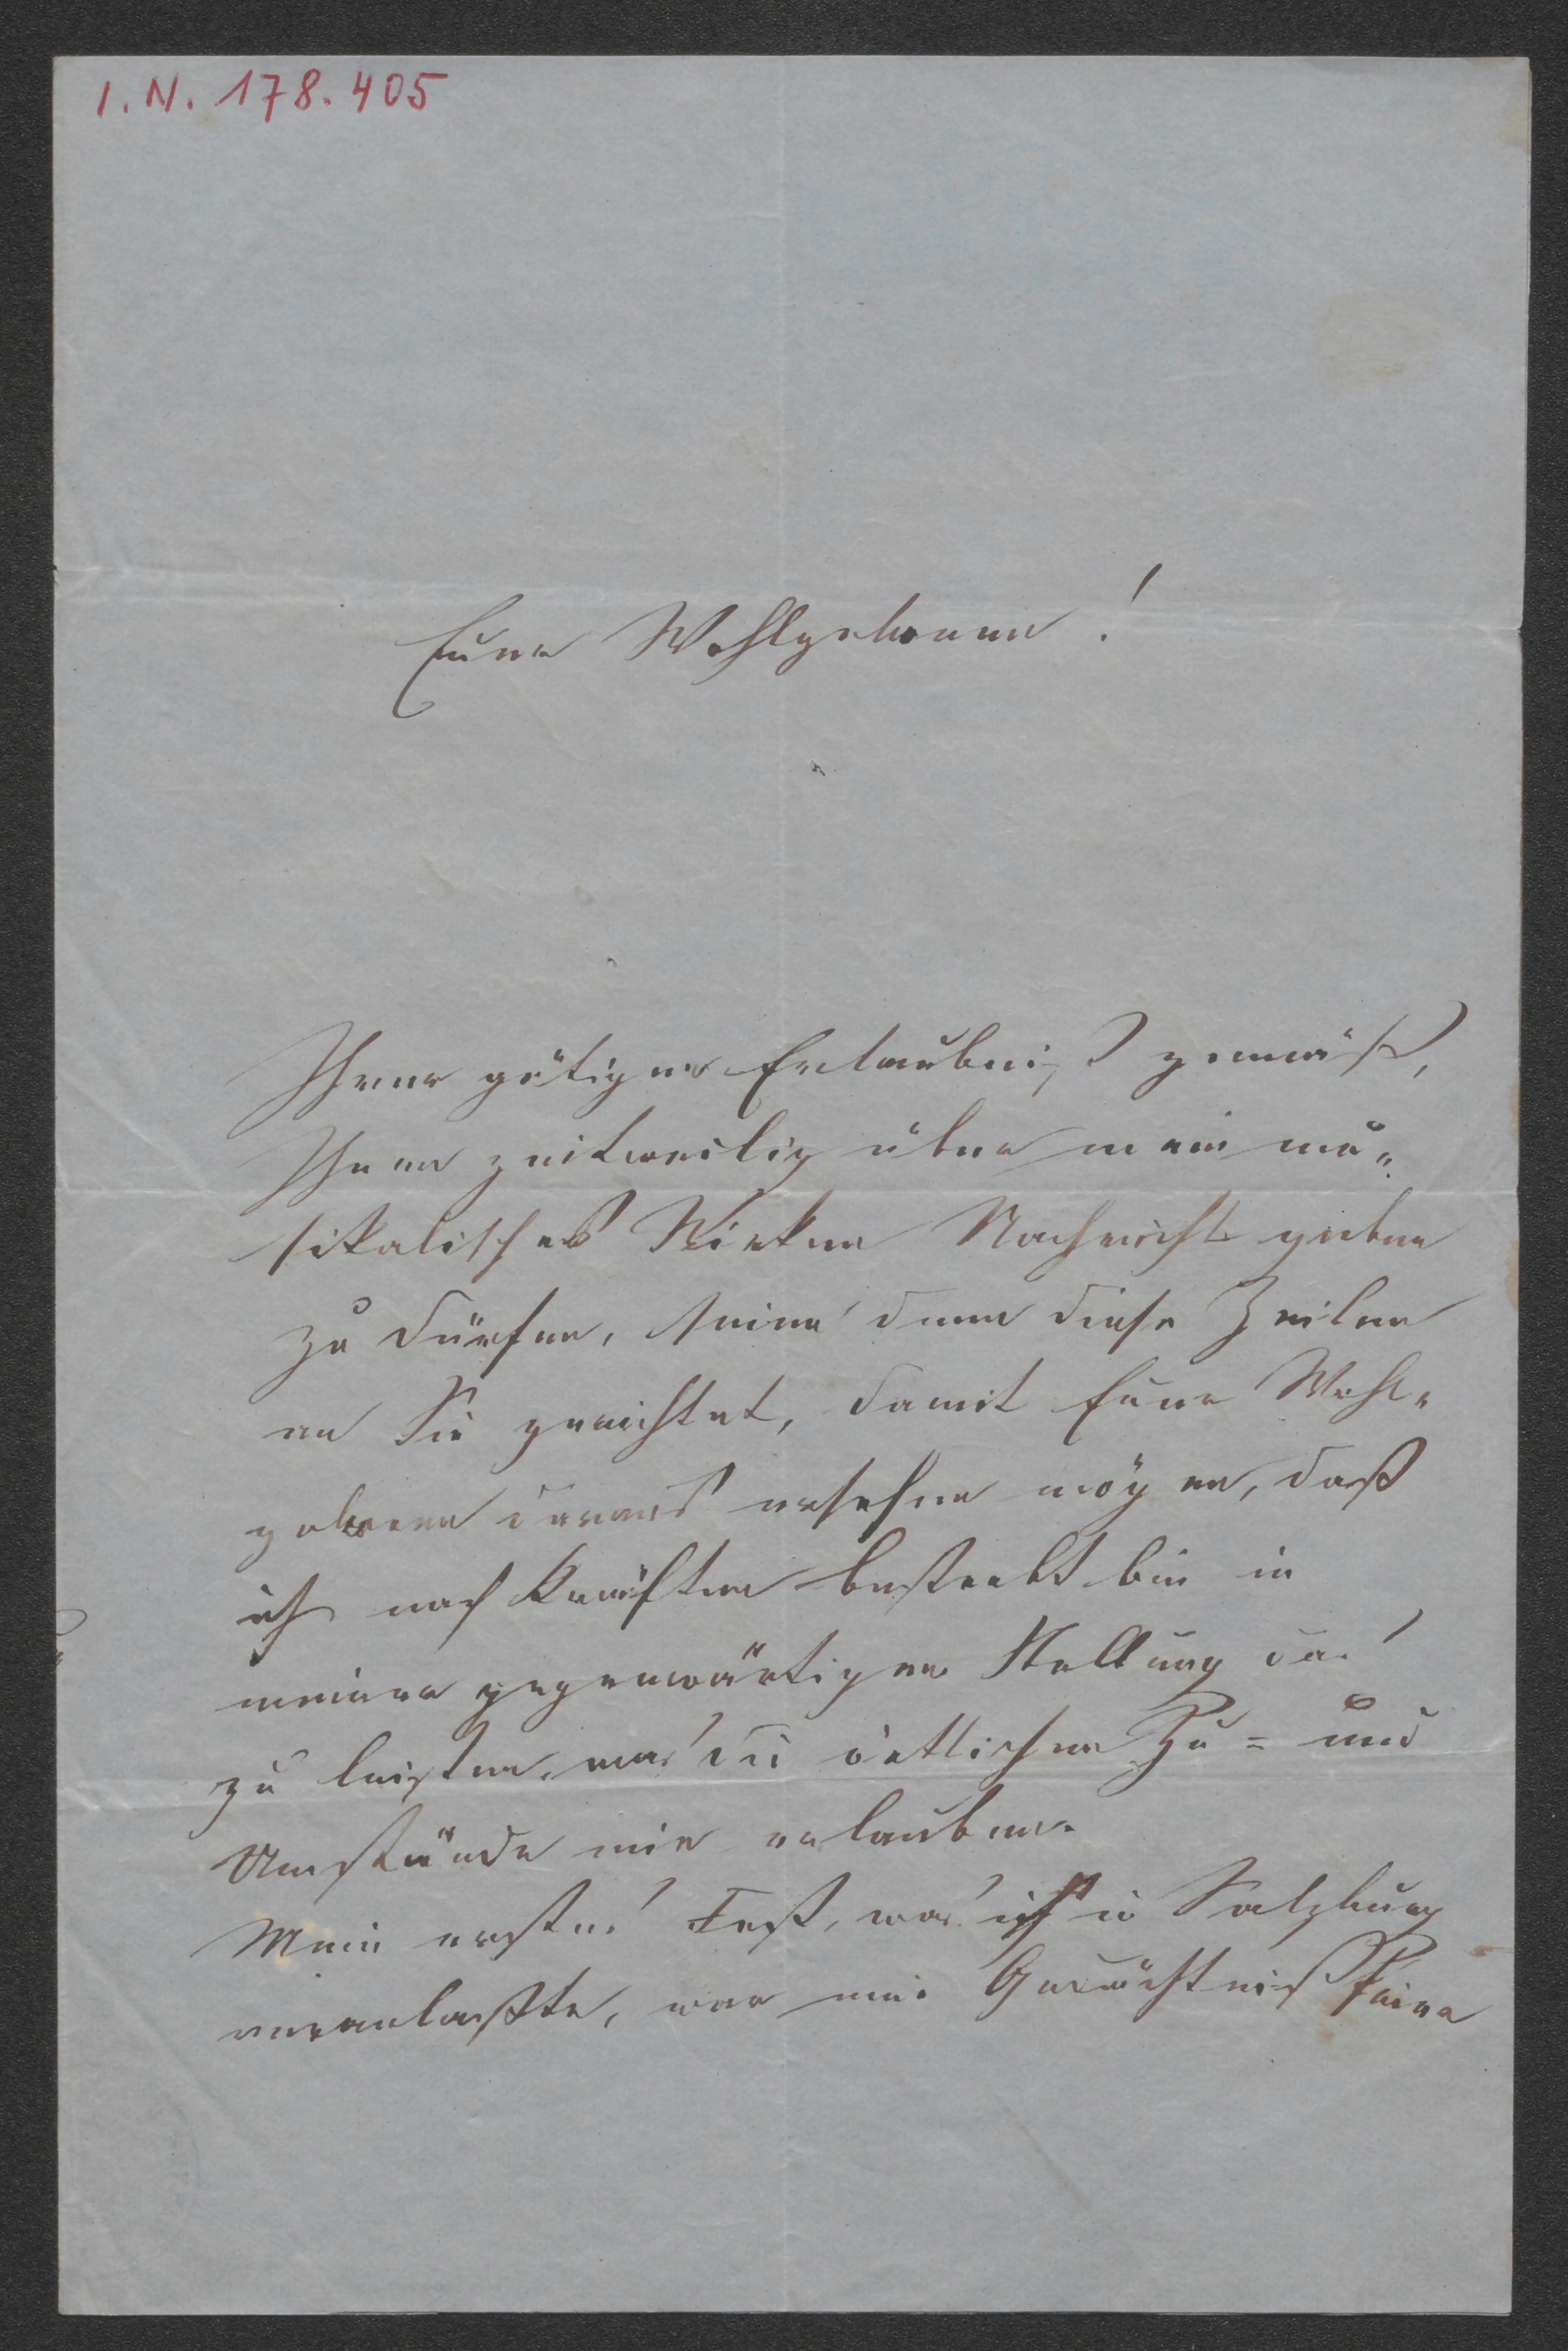 I.N. 178.405
Euer Wohlgeboren!
Ihrer gütigen Erlaubniß gemäß,
Ihnen zeitweilig über mein mu„
sikalisches Wirken Nachricht geben
zu dürfen, seien denn diese Zeilen
an Sie gerichtet, damit Euer Wohl„
geboren daraus ersehen mögen, daß
ich nach Kräften bestrebt bin in
meiner gegenwärtigen Stellung das
zu leisten, was die örtlichen Zu= und
Umstände mir erlauben.
Mein erstes Fest, was ich in Salzburg
veranlaßte, war eine Gedächtnißfeier